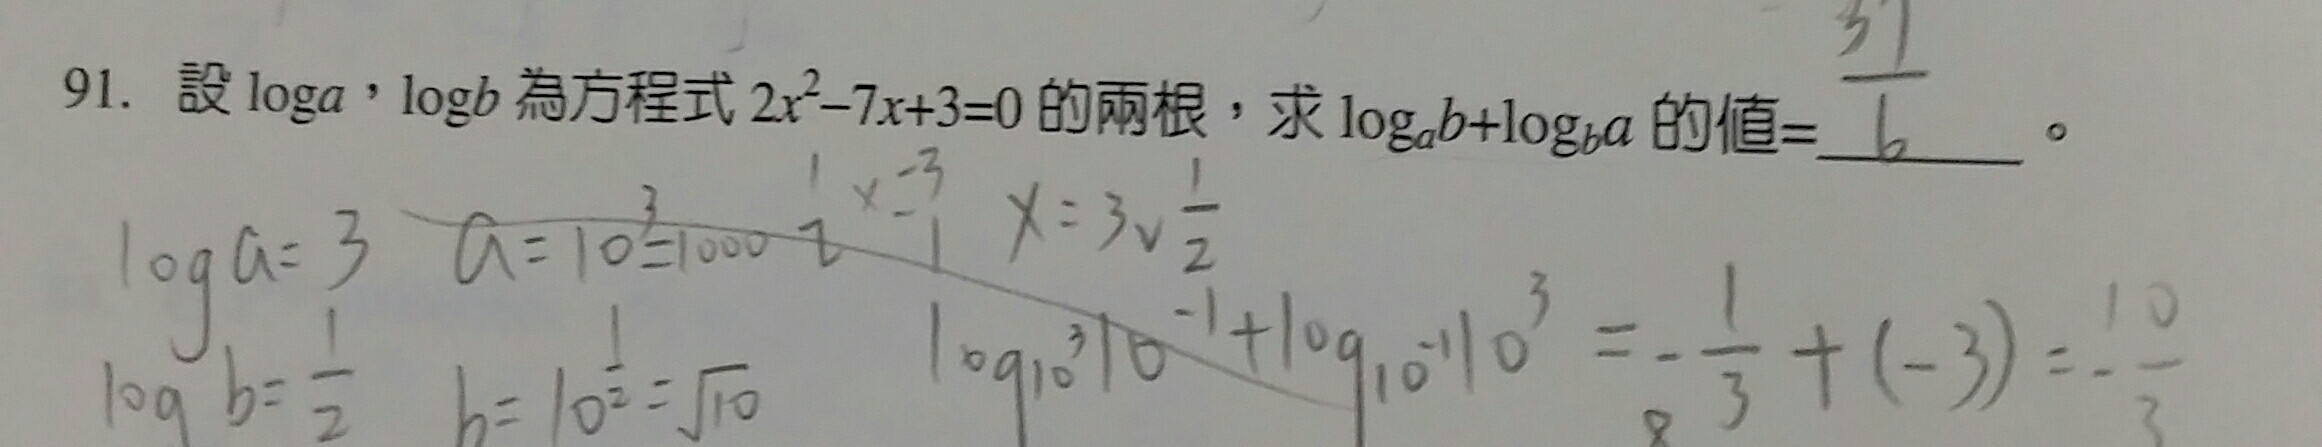 91. 設 loga，logb 為方程式 2x²–7x+3=0 的兩根，求 logₐb+log_b a 的值= 37/6 。
1 x -3
2 -1
x = 3 v 1/2
log a = 3 a = 10³ = 1000
log b = 1/2 b = 10^(1/2) = √10
log_(10³) 10⁻¹ + log_(10⁻¹) 10³ = -1/3 + (-3) = -10/3